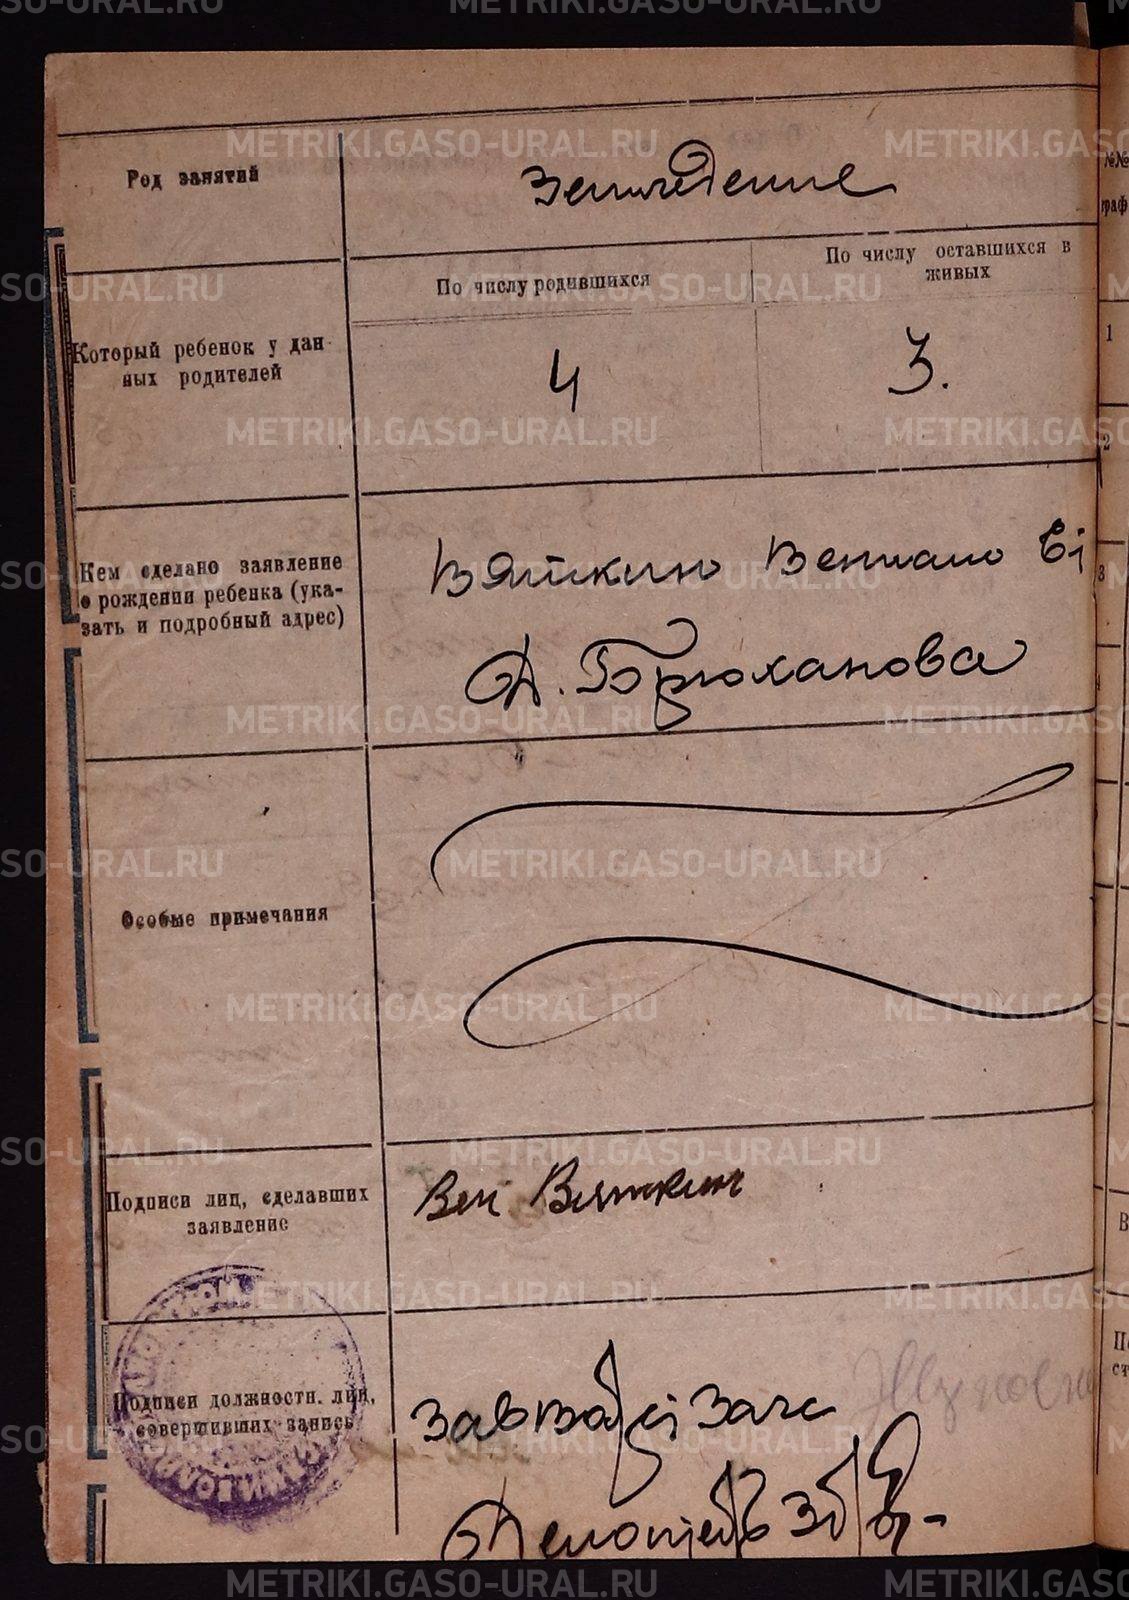 METRIKI.GASO-URAL.RU
Род занятий
Земледелие
Который ребенок у дан-
ных родителей
По числу родившихся
По числу оставшихся в
живых
4
3.
Кем сделано заявление
о рождении ребенка (ука-
зать и подробный адрес)
Вяткин Вениамин
Д. Брюханова
Особые примечания
Подписи лиц, сделавших
заявление
Вен Вяткин
Подписи должностн. лиц,
совершивших запись
Загс
№№
граф
1
2
3
4